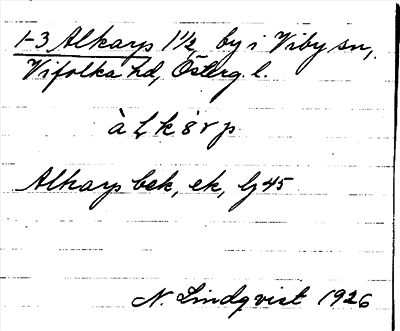 1-3 Alkarp 1 1/2 by i Viby sn,
Vifolka hd, Österg. l.
àlkörp
Alkarp bek, ek, Gj 45
N. Lindqvist 1926